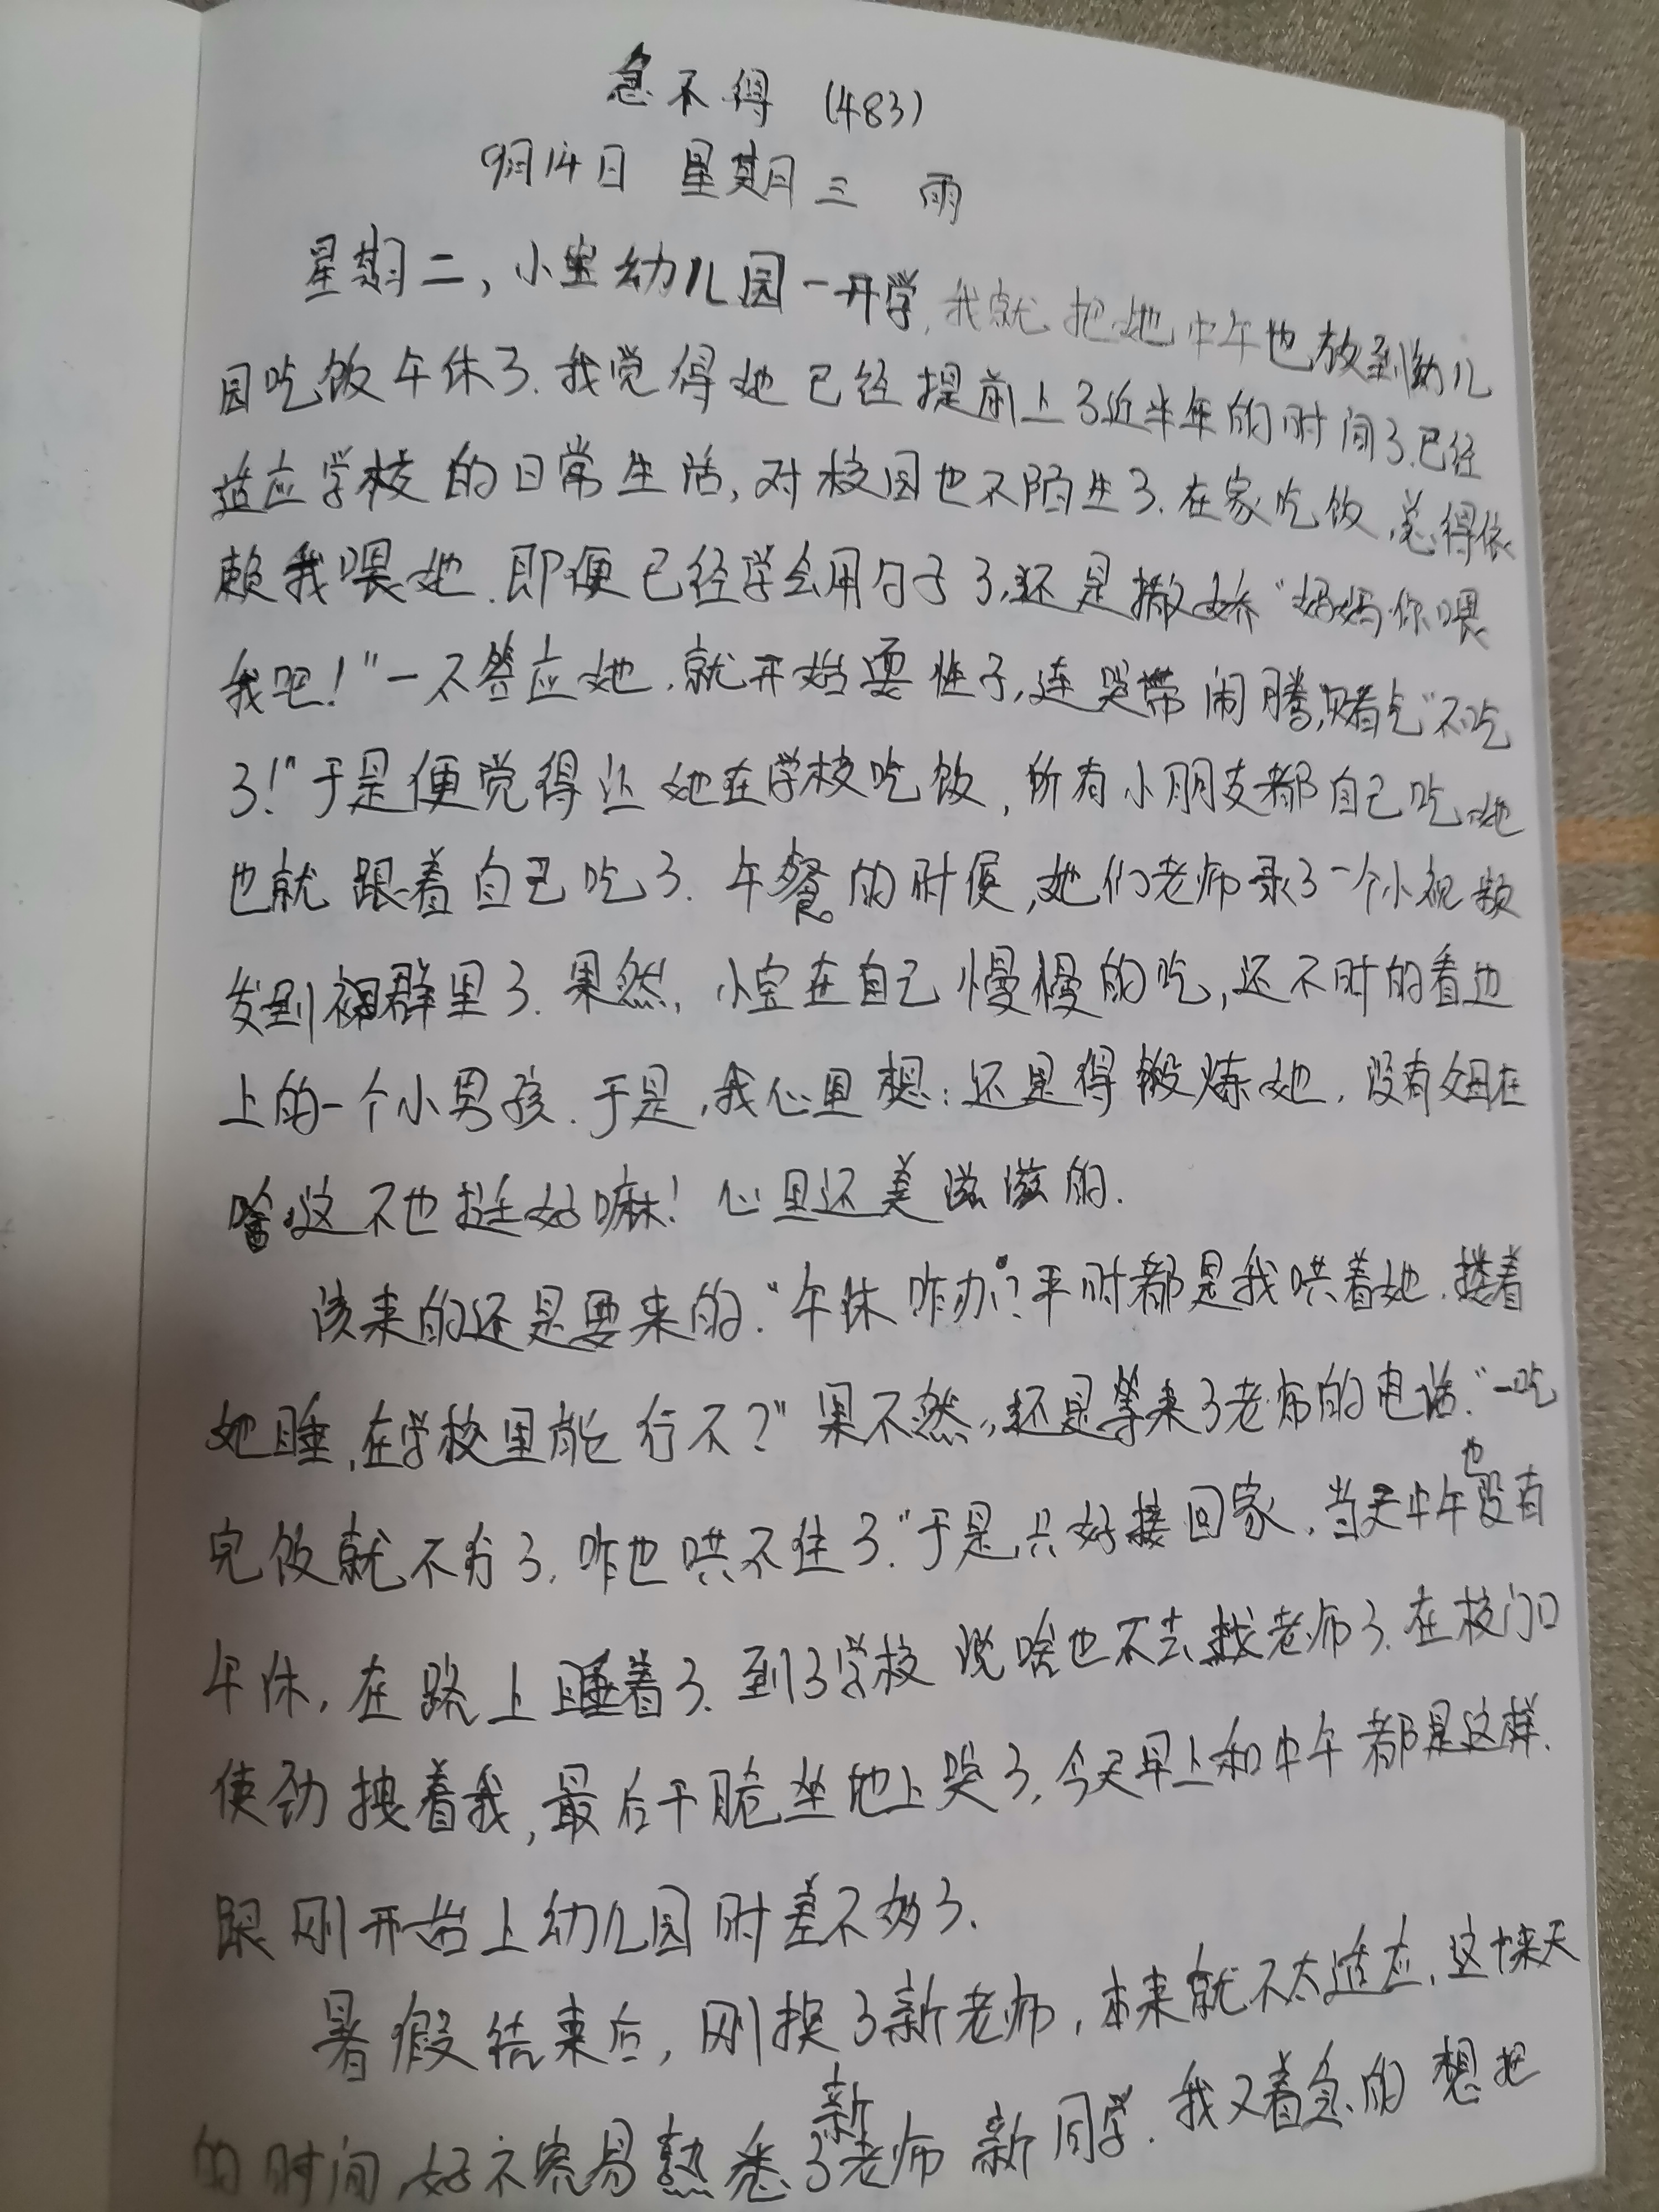 急不得 (483)
9月14日 星期三 雨
星期二,小宝幼儿园一开学,我就把她中午也放到幼儿
园吃饭午休了.我觉得她已经提前上了近半年的时间了.已经
适应学校的日常生活,对校园也不陌生了.在家吃饭,总得依
赖我喂她.即便已经学会用勺子了,还是撒娇"妈妈你喂
我吧!"一不答应她.就开始耍性子,连哭带闹腾,赌气"不吃
了!"于是便觉得让她在学校吃饭,所有小朋友都自己吃.她
也就跟着自己吃了.午餐的时候,她们老师录了一个小视频
发到群里了.果然,小宝在自己慢慢的吃,还不时的看边
上的一个小男孩.于是,我心里想:还是得锻炼她.没有妈在
啥.这不也挺好嘛!心里还美滋滋的.
该来的还是要来的."午休咋办?平时都是我哄着她.搂着
她睡,在学校里能行不?"果不然,还是等来了老师的电话."一吃
完饭就不行了,咋也哄不住了."于是只好接回家.当天中午也没有
午休,在路上睡着了.到了学校说啥也不去找老师了.在校门口
使劲拽着我,最后干脆坐地上哭了.今天早上和中午都是这样.
跟刚开始上幼儿园时差不多了.
暑假结束后,刚换了新老师,本来就不太适应.这十来天
的时间,好不容易熟悉了新老师新同学.我又着急的想把